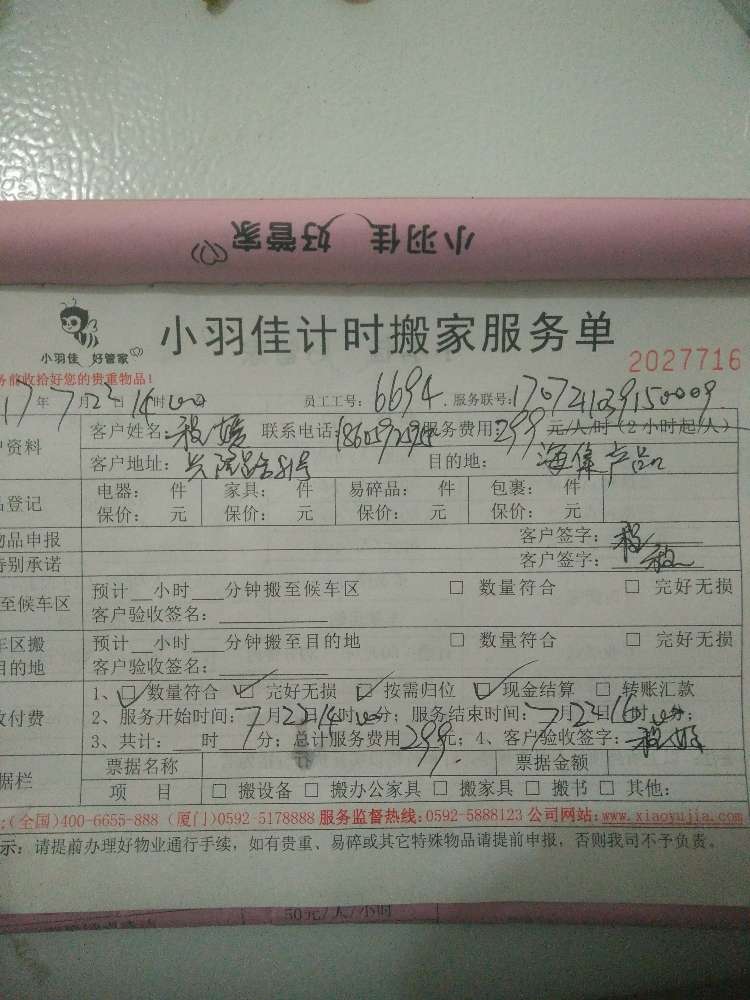 小羽佳 好管家
小羽佳 好管家
小羽佳计时搬家服务单
2027716
务前收拾好您的贵重物品!
17年7月23日14时00 员工工号:6694 服务联号:
户资料 客户姓名: 联系电话: 服务费用:299 元/人/时(2小时起/人)
客户地址: 目的地:
品登记 电器: 件 家具: 件 易碎品: 件 包裹: 件
保价: 元 保价: 元 保价: 元 保价: 元
物品申报 客户签字:
特别承诺 客户签字:
至候车区 预计__小时___分钟搬至候车区 □ 数量符合 □ 完好无损
客户验收签名:
车区搬 预计__小时___分钟搬至目的地 □ 数量符合 □ 完好无损
目的地 客户验收签名:
收付费 1、☑数量符合 ☑完好无损 ☑按需归位 ☑现金结算 □ 转账汇款
2、服务开始时间:7月23日14时00分; 服务结束时间:7月23日16时00分;
3、共计:___时___分; 总计服务费用299元; 4、客户验收签字:
据栏 票据名称 票据金额
项 目 □ 搬设备 □ 搬办公家具 □ 搬家具 □ 搬书 □ 其他:
:(全国)400-6655-888 (厦门)0592-5178888 服务监督热线:0592-5888123 公司网站:www.xiaoyujia.com
示: 请提前办理好物业通行手续,如有贵重、易碎或其它特殊物品请提前申报,否则我司不予负责。
50元/人/小时